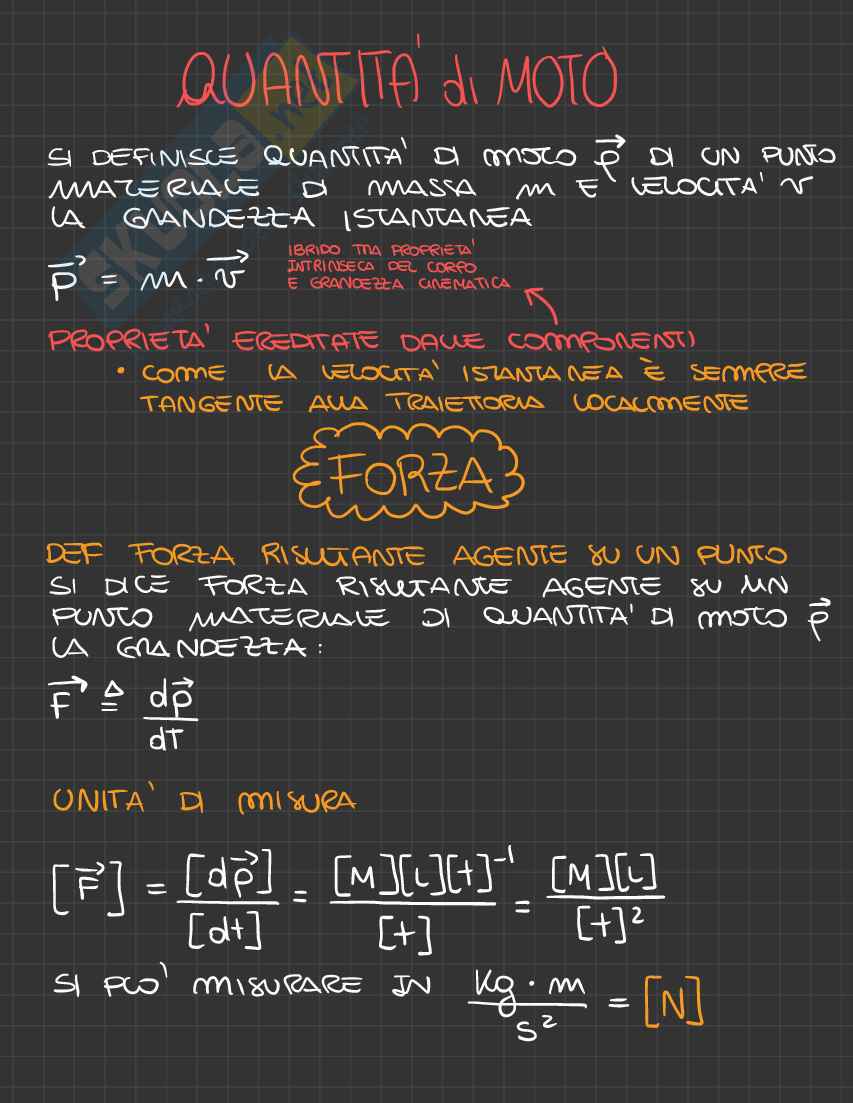 QUANTITA' di MOTO
SI DEFINISCE QUANTITA' DI MOTO p⃗ DI UN PUNTO
MATERIALE DI MASSA m E VELOCITA' v
LA GRANDEZZA ISTANTANEA
p⃗ = m · v⃗
IBRIDO TRA PROPRIETA'
INTRINSECA DEL CORPO
E GRANDEZZA CINEMATICA
PROPRIETA' EREDITATE DALLE COMPONENTI
• COME LA VELOCITA' ISTANTANEA È SEMPRE
TANGENTE ALLA TRAIETTORIA LOCALMENTE
FORZA
DEF FORZA RISULTANTE AGENTE SU UN PUNTO
SI DICE FORZA RISULTANTE AGENTE SU UN
PUNTO MATERIALE DI QUANTITA' DI MOTO p⃗
LA GRANDEZZA:
F⃗ ≜ dp⃗/dT
UNITA' DI MISURA
[F⃗] = [dp⃗]/[dt] = [M][L][t]⁻¹/[t] = [M][L]/[t]²
SI PUO' MISURARE IN kg · m/s² = [N]